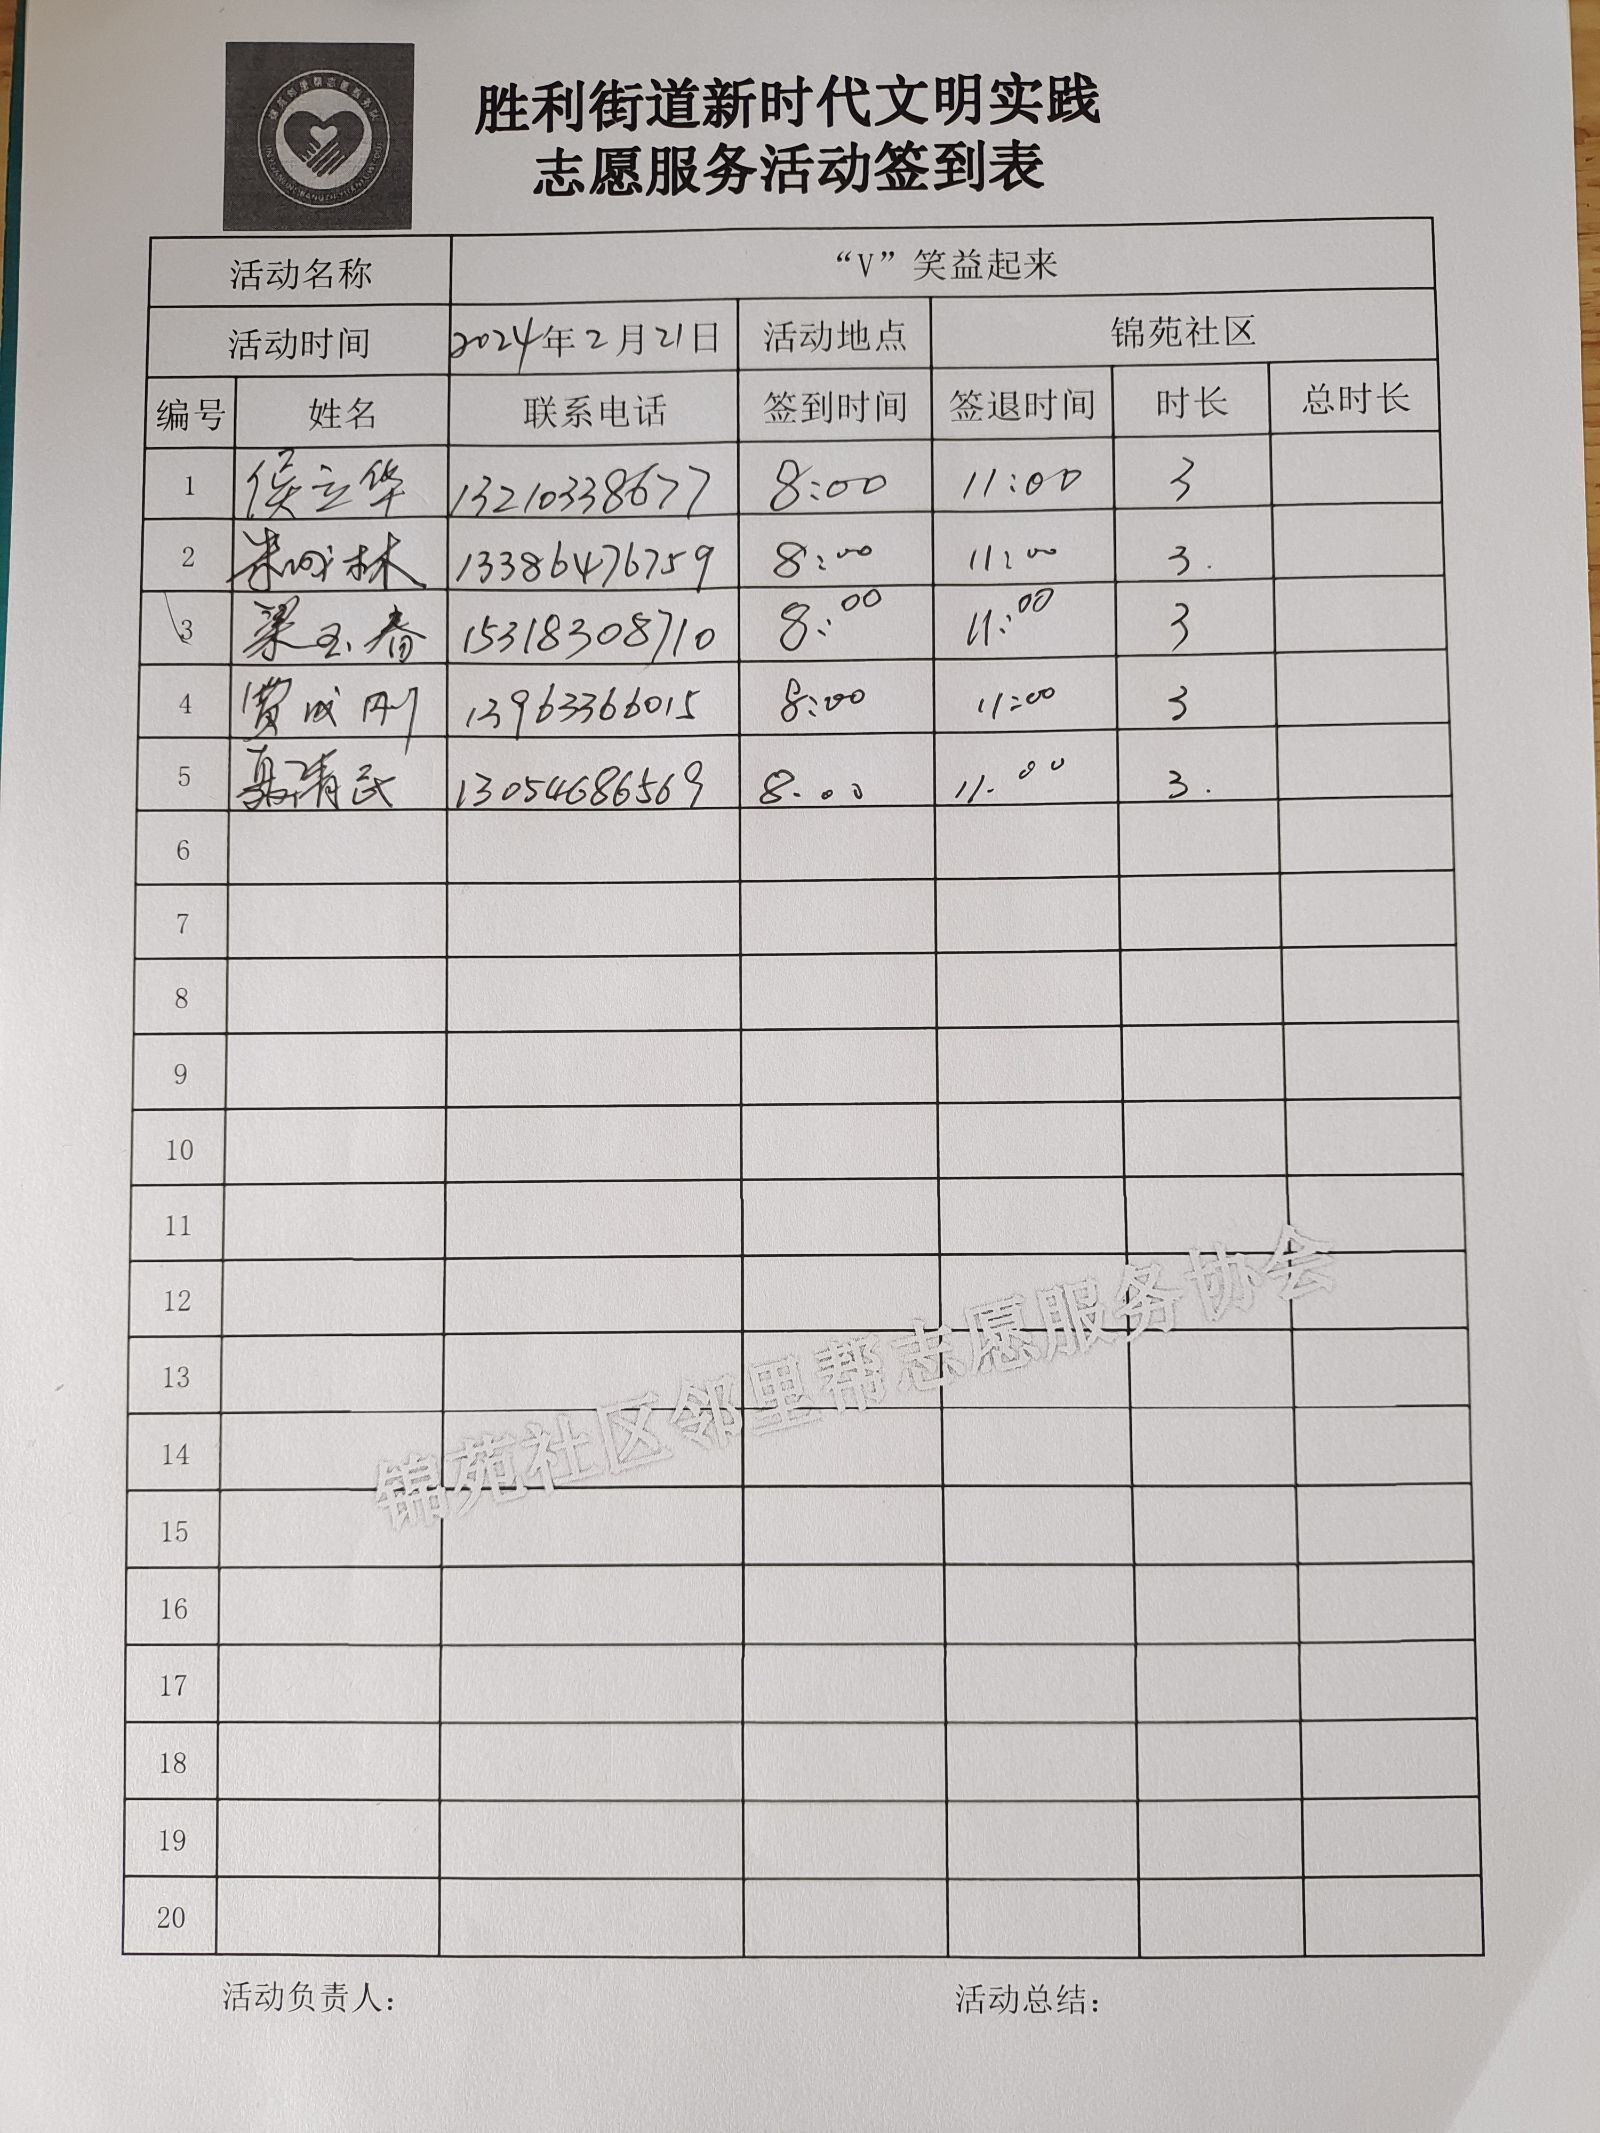 胜利街道新时代文明实践
志愿服务活动签到表
活动名称 “V”笑益起来
活动时间 2024年2月21日 活动地点 锦苑社区
编号 姓名 联系电话 签到时间 签退时间 时长 总时长
1 侯立华 13210338677 8:00 11:00 3
2 朱成林 13386476759 8:00 11:00 3.
3 梁玉春 15318308710 8:00 11:00 3
4 贾成刚 13963366015 8:00 11:00 3
5 聂清民 13054686569 8:00 11:00 3.
6
7
8
9
10
11
12
13
14
15
16
17
18
19
20
锦苑社区邻里帮志愿服务协会
活动负责人： 活动总结：